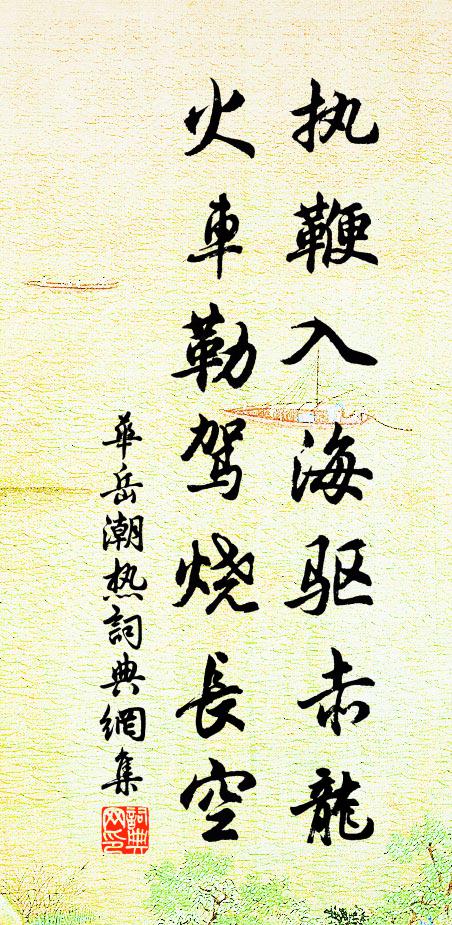 执鞭入海驱赤龍
火車勒駕烧長空
華岳潮热詞典網集
詞典网印